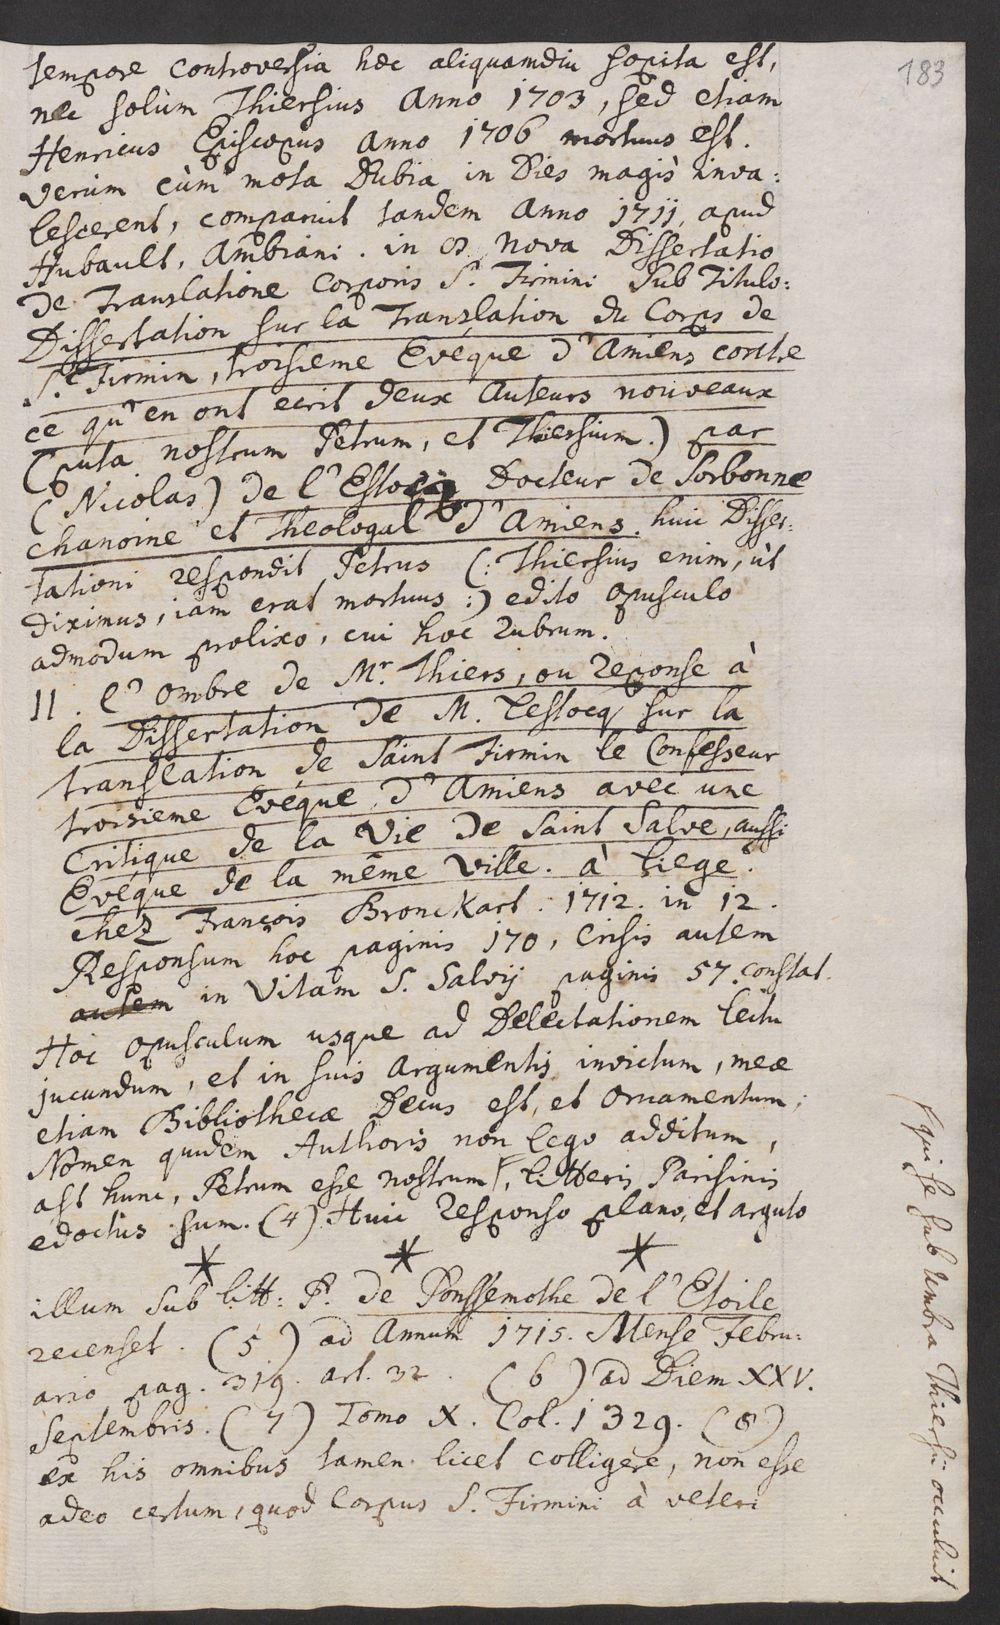 183
tempore controversia hæc aliquamdiu sopita est,
nec solùm Thiersius Anno 1703, sed etiam
Henricus Episcopus Anno 1706 mortuus est.
verùm cùm mota Dubia in Dies magis inva:
lescerent, comparuit tandem Anno 1711, apud
Hubault, Ambiani. in 8. nova Dissertatio
De Translatione Corporis S. Firmini Sub Titulo:
Dissertation sur la Translation du Corps de
S.t Firmin, troisieme Evéque d'Amiens contre
ce qu'en ont ecrit deux Auteurs nouveaux
(puta nostrum Petrum, et Thiersium.) par
(Nicolas) De l'Estocq Docteur de Sorbonne
chanoine et Theologal d'Amiens. huic Disser:
tationi respondit Petrus (: Thiersius enim, ùt
diximus, iàm erat mortuus :) edito opusculo
admodum prolixo, cui hoc rubrum.
11. l'ombre de M.r Thiers, ou reponse à
la Dissertation de M. Lestocq sur la
translation de Saint Firmin le Confesseur
troisieme Evéque d'Amiens avec une
Critique de la Vie de Saint Salve, aussi
Evéque de la même Ville. à Liege.
chez François Bronckart. 1712. in 12.
Responsum hoc paginis 170, Crisis autem
autem in Vitam S. Salvij paginis 57. constat.
Hoc opusculum usque ad Delectationem lectu
jucundum, et in suis Argumentis invictum, meæ
etiam Bibliothecæ Decus est, et ornamentum;
Nomen quidem Authoris non lego additum,
ast hunc, Petrum esse nostrum, litteris Parisinis
edoctus sum. (4) Huic Responso plano, et arguto
* * *
illum sub litt: P. De Ponssemothe de l'Etoile
recenset. (5) ad Annum 1715. Mense Febru:
ario pag. 319. art. 32. (6) ad Diem XXV.
Septembris. (7) Tomo X. Col. 1329. (8)
ex his omnibus tamen licet colligere, non esse
adeo certum, quod Corpus S. Firmini à veteri
qui se sub umbra Thiersii occuluit